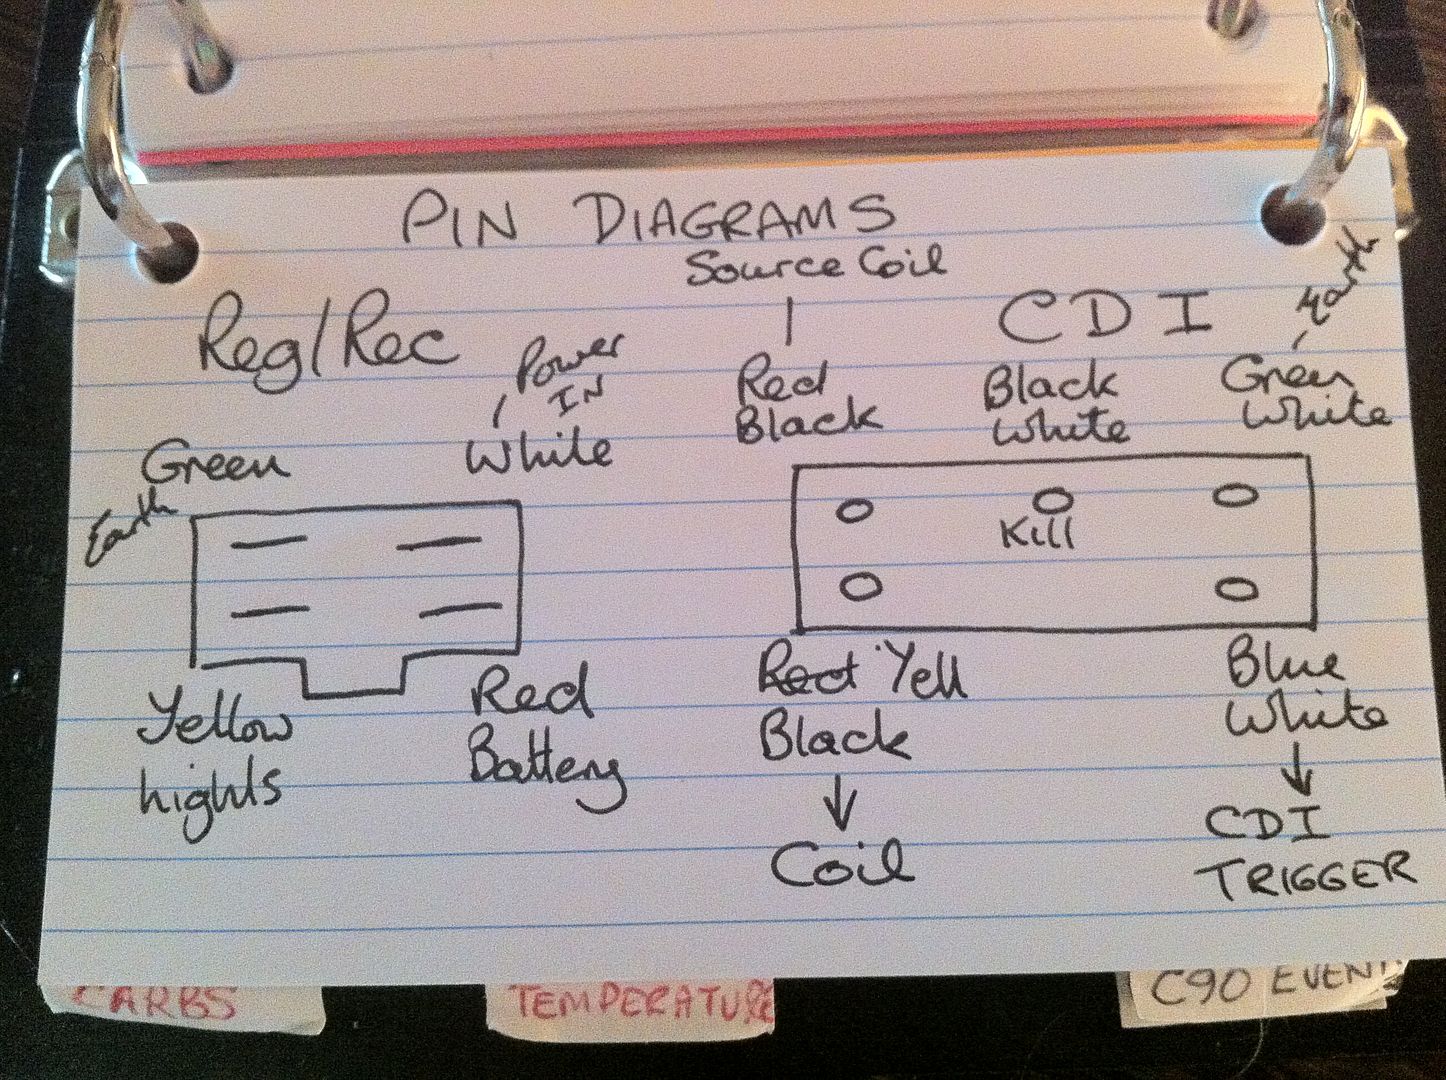 PIN DIAGRAMS
Source Coil
Reg/Rec
Power
IN
CDI
Earth
Green
White
Red
Black
Black
White
Green
White
Earth
Kill
Yellow
Lights
Red
Battery
Red Yell
Black
Coil
Blue
White
CDI
TRIGGER
CARBS
TEMPERATURE
C90 EVENT